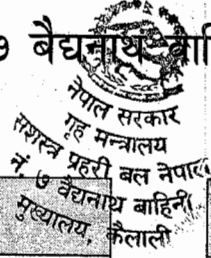 ९ बैद्यनाथ
नेपाल सरकार
गृह मन्त्रालय
सशस्त्र प्रहरी बल नेपाल
नं. ७ वैद्यनाथ बाहिनी
मुख्यालय, कैलाली